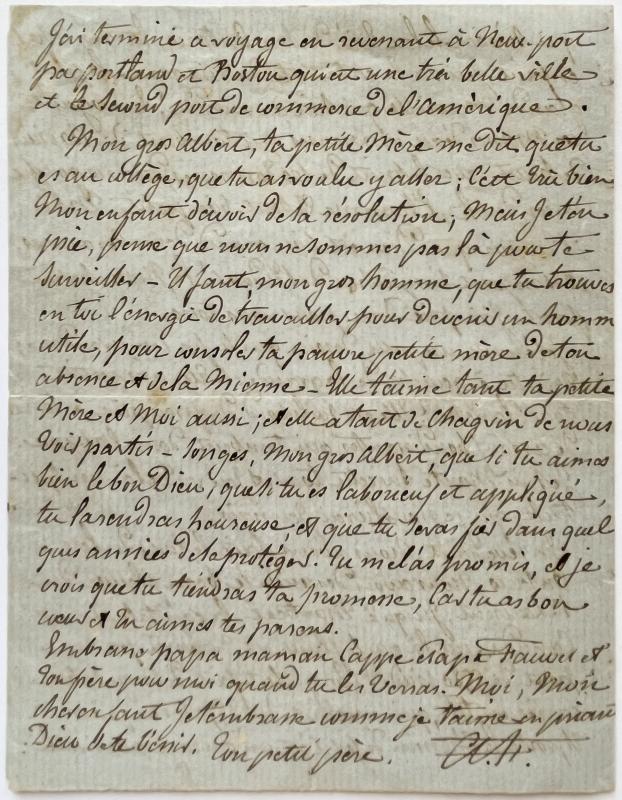 J'ai terminé ce voyage en revenant à New-port
par portland et Boston qui est une très belle ville
et le second port de commerce de l'amérique.
Mon gros Albert, ta petite Mère me dit que tu
es au collège, que tu as voulu y aller ; C'est très bien
Mon enfant d'avoir de la résolution ; Mais Je t'en
prie, pense que nous ne sommes pas là pour te
surveiller - Il faut, mon gros homme, que tu trouves
en toi l'énergie de travailler pour devenir un homme
utile, pour consoler ta pauvre petite mère de ton
absence et de la Mienne - Elle t'aime tant ta petite
Mère et Moi aussi ; et elle a tant de Chagrin de nous
Voir partis - Songes, Mon gros Albert, que si tu aimes
bien le bon Dieu, que si tu es laborieux et appliqué,
tu la rendras heureuse, et que tu seras fier dans quel
ques années de la protéger. Tu me l'as promis, et je
crois que tu tiendras ta promesse, Car tu as bon
cœur et tu aimes tes parens.
Embrasse papa maman Cappe et papa Fauvel et
ton frère pour moi quand tu les verras. Moi, Mon
cher enfant Je t'embrasse comme je t'aime en priant
Dieu de te bénir. Ton petit père.